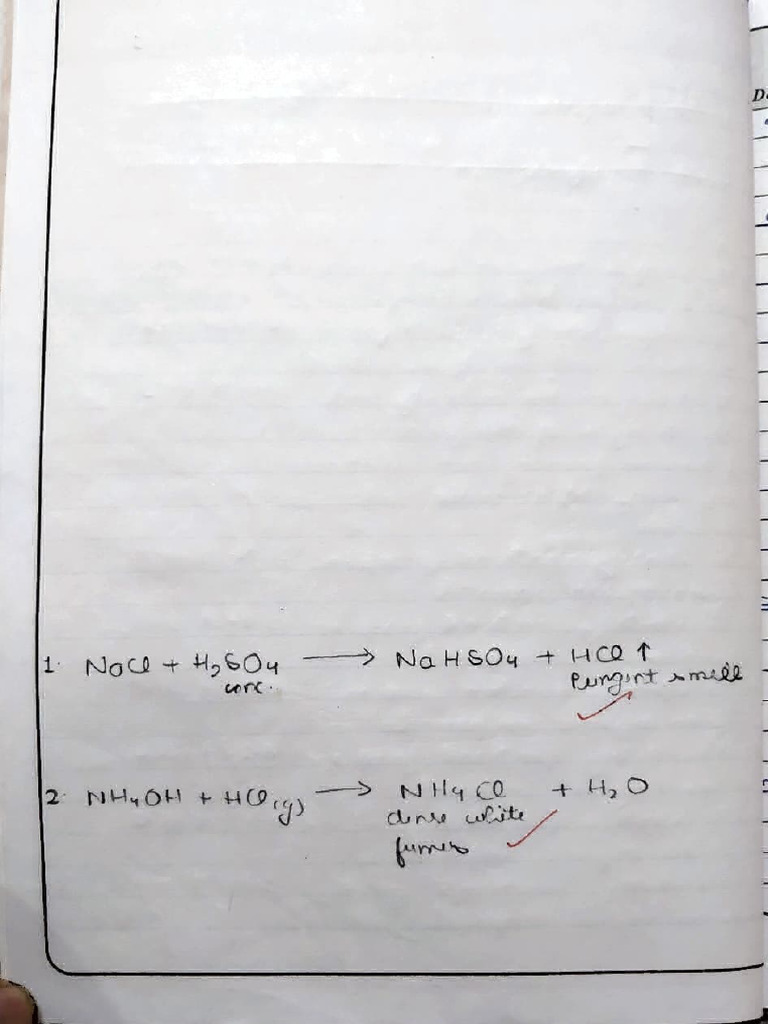 1. NaCl + H₂SO₄ ⟶ NaHSO₄ + HCl ↑
conc. Pungint smell
2. NH₄OH + HCl(g) ⟶ NH₄Cl + H₂O
dense white
fumes